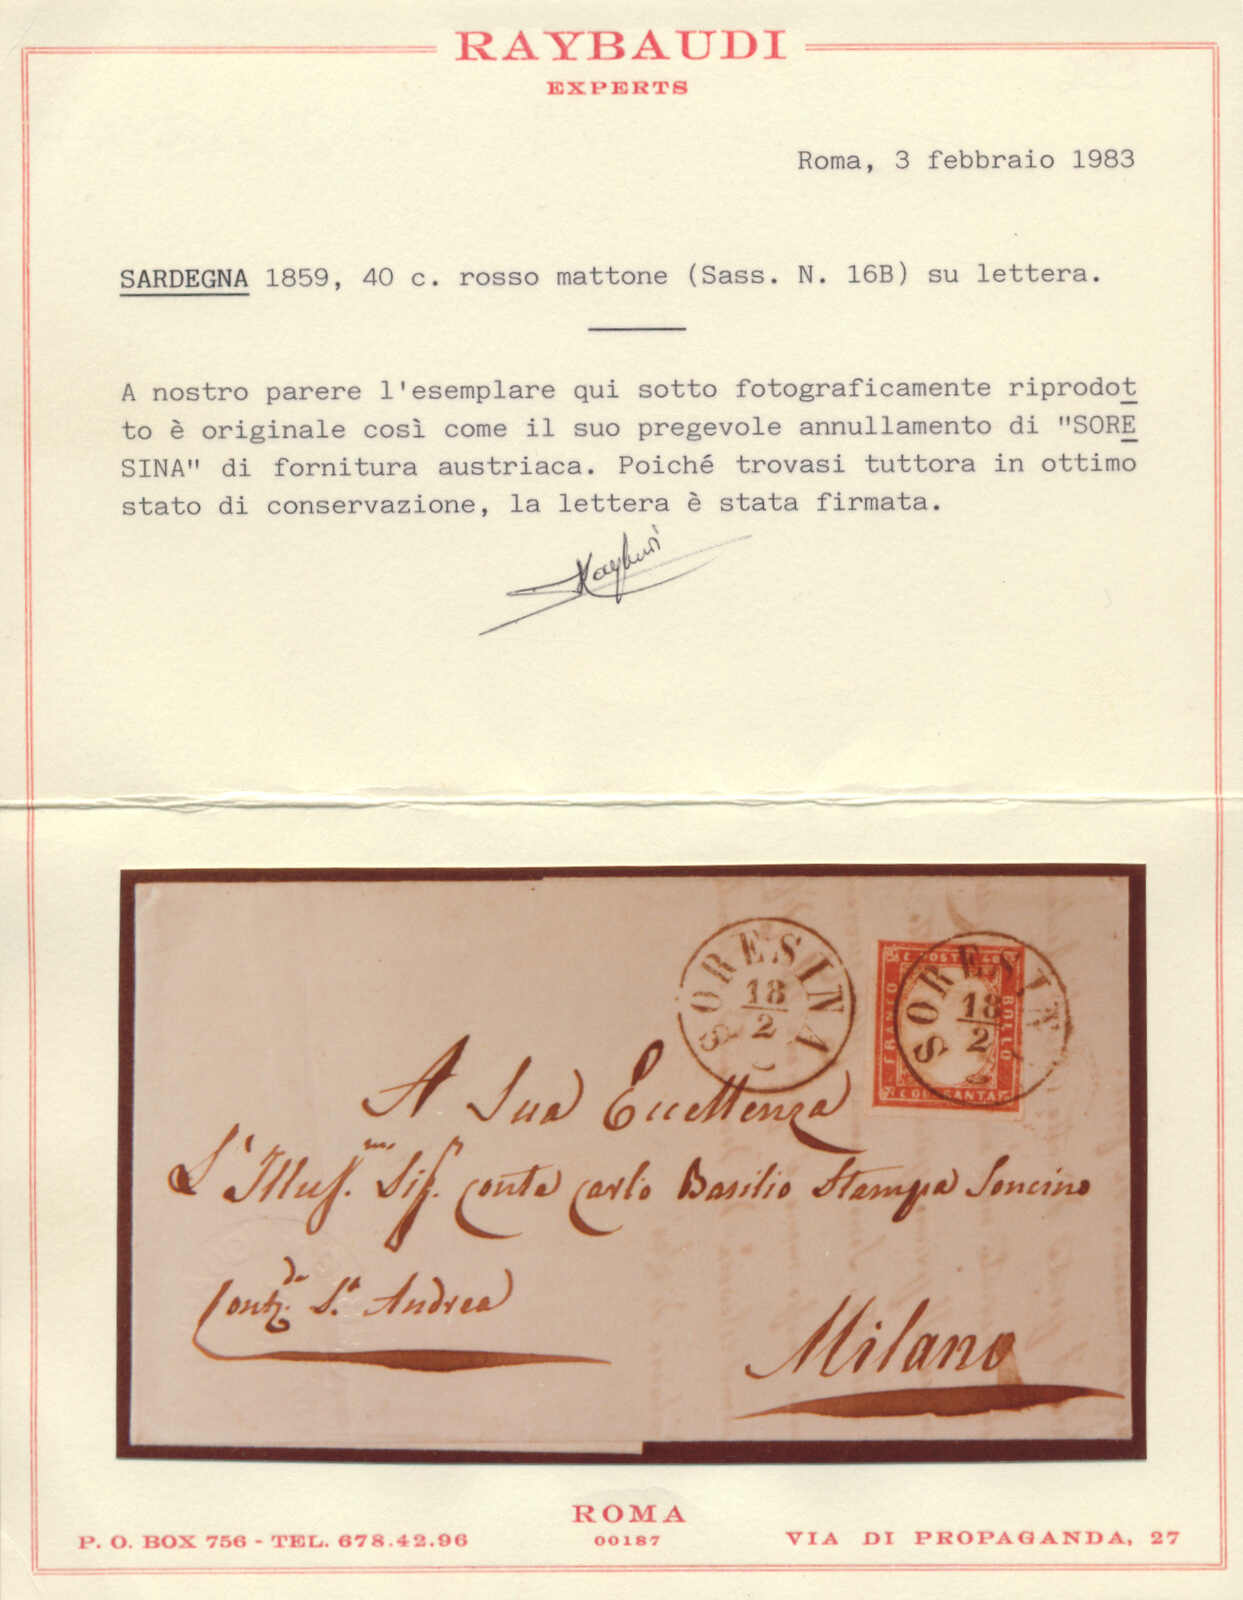 RAYBAUDI
EXPERTS
Roma, 3 febbraio 1983
SARDEGNA 1859, 40 c. rosso mattone (Sass. N. 16B) su lettera.
A nostro parere l'esemplare qui sotto fotograficamente riprodot
to è originale così come il suo pregevole annullamento di "SORE
SINA" di fornitura austriaca. Poiché trovasi tuttora in ottimo
stato di conservazione, la lettera è stata firmata.
Raybaudi
SORESINA
18
2
C. POSTE 40
FRANCO
BOLLO
C. QUARANTA
SORESINA
18
2
A Sua Eccellenza
L' Illus.mo Sig. Conte Carlo Basilio Stampa Soncino
Cont.da S.t Andrea
Milano
ROMA
P. O. BOX 756 - TEL. 678.42.96
00187
VIA DI PROPAGANDA, 27